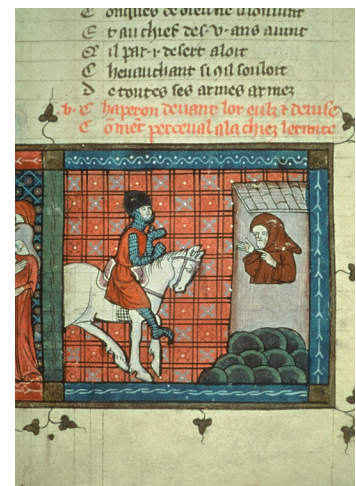 onques de dieu ne
E t au chief des · v · ans auint
Q il par · i · desert aloit
C heuauchant si ꝯ il souloit
D e toutes ses armes armez
C haperon deuant lor eulz ⁊ deuise
C õmẽt perceual ala chiez lermite